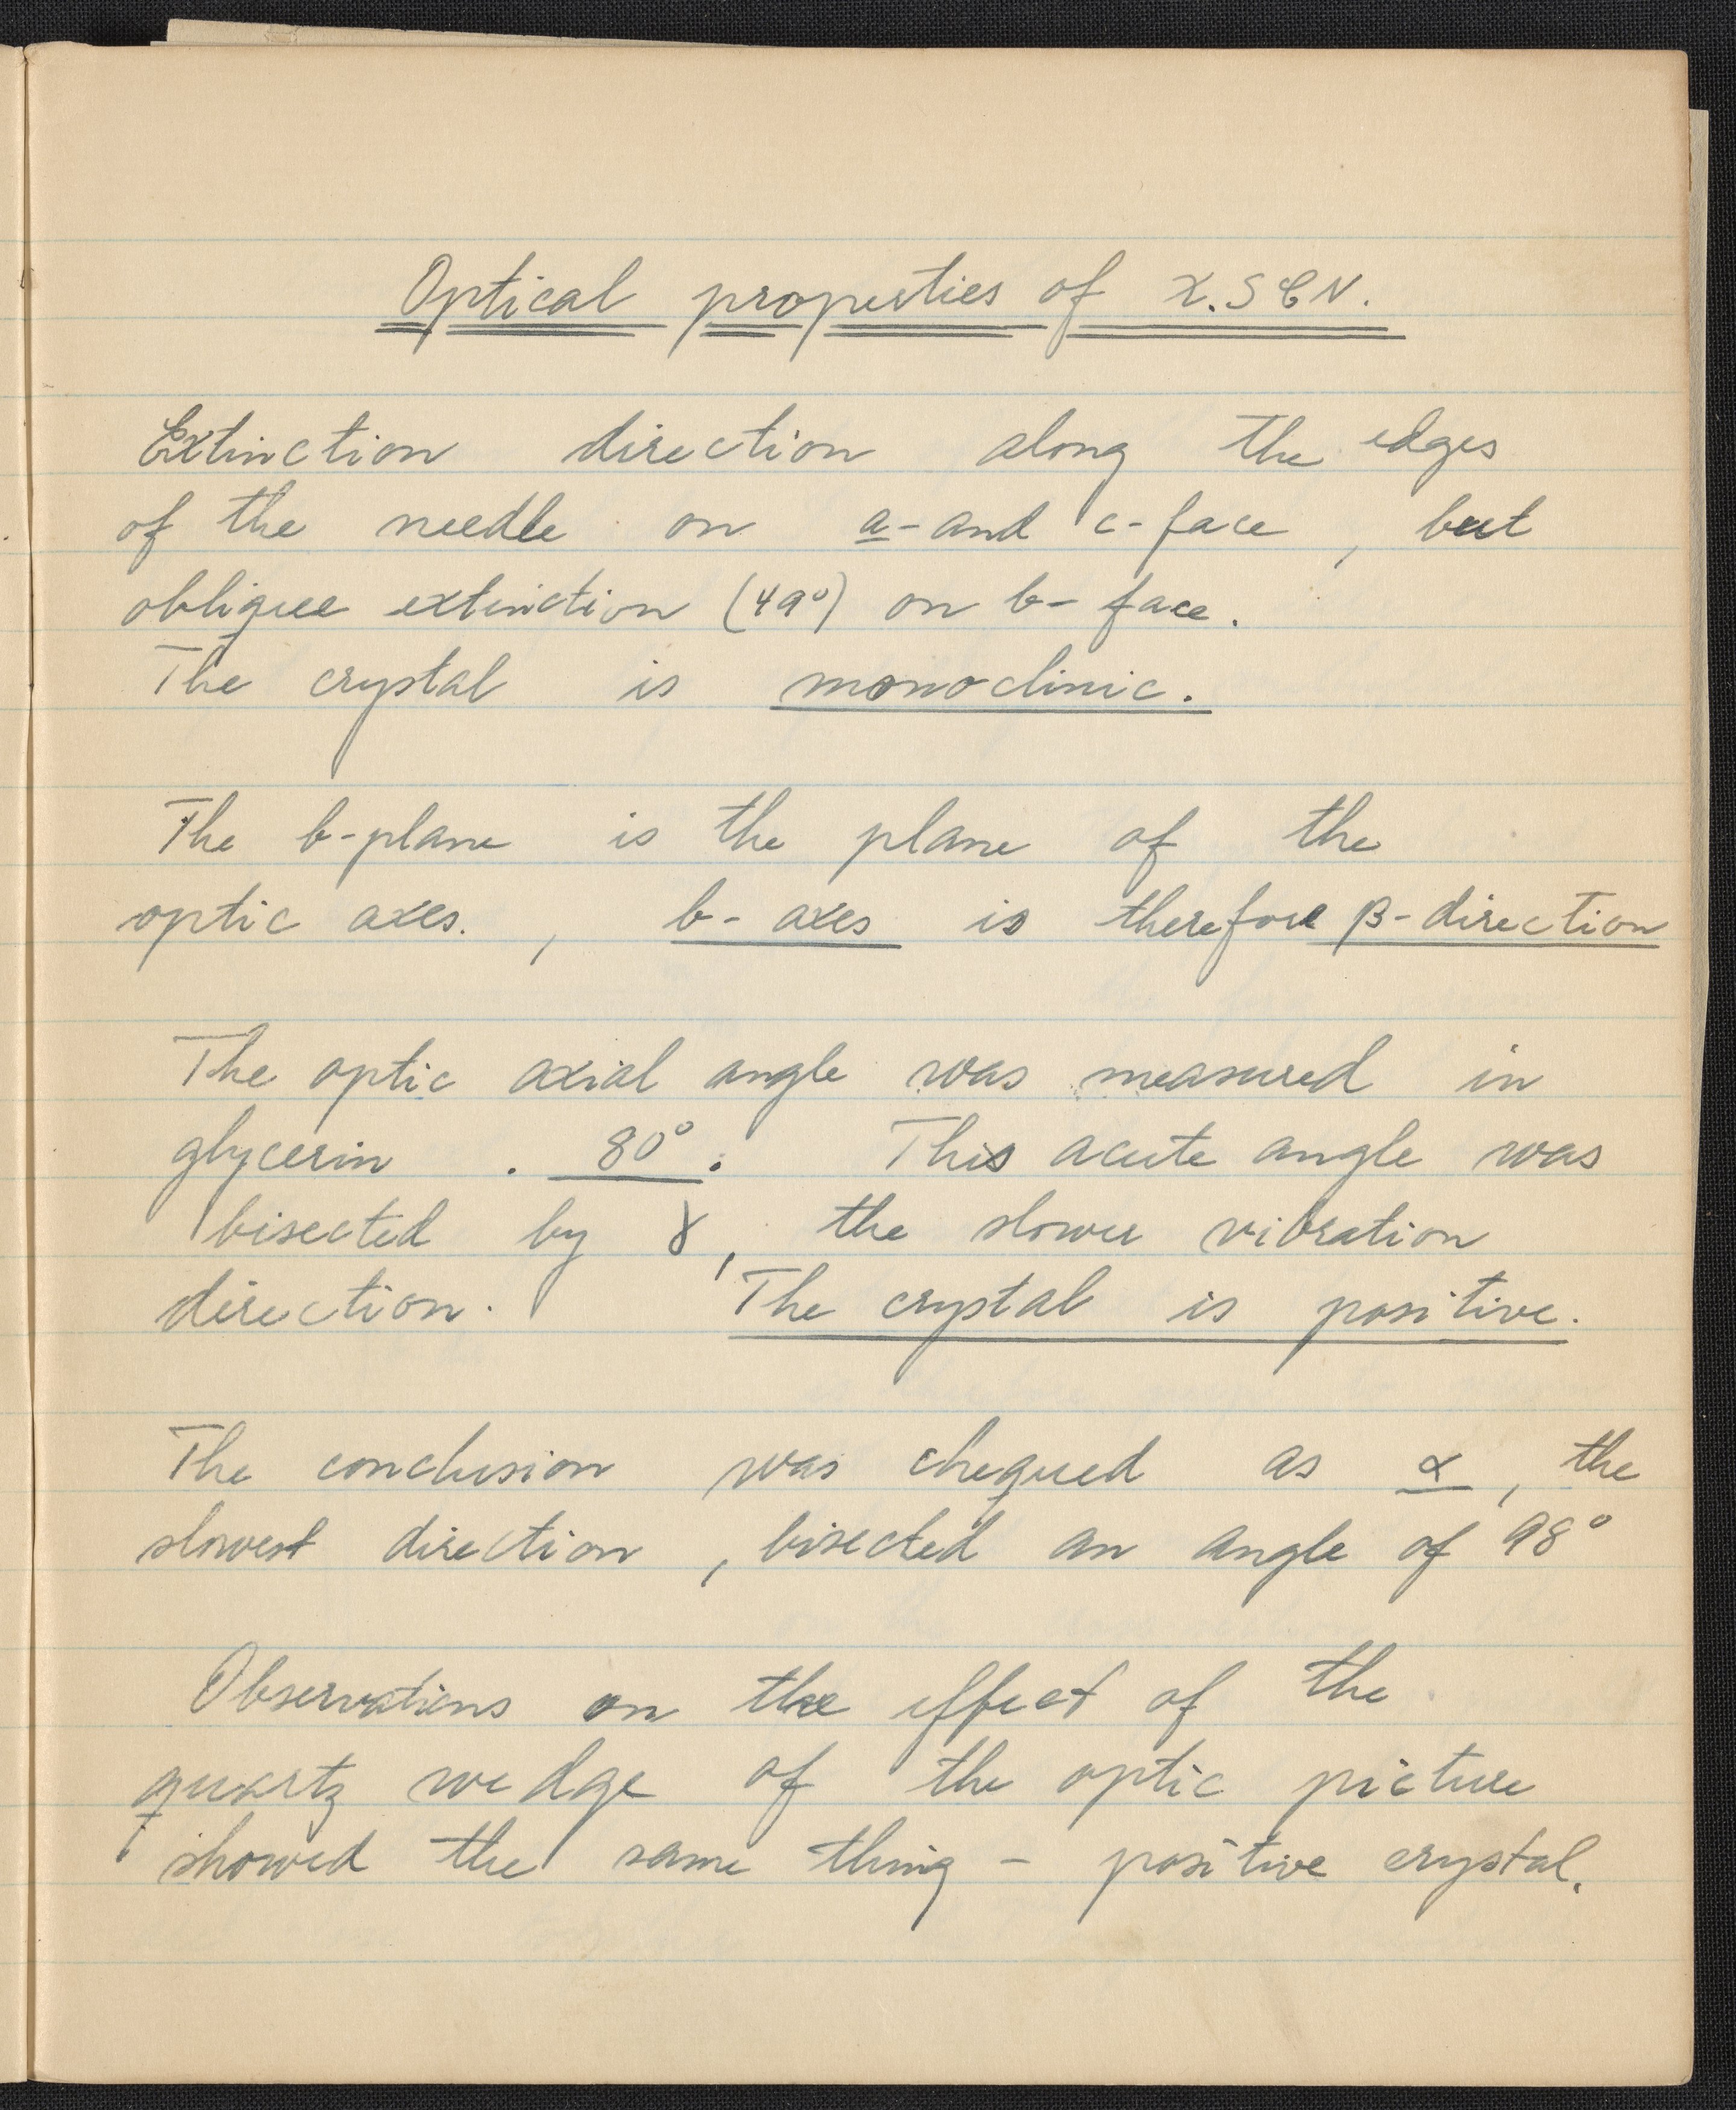 Optical properties of X.SCN.
Extinction direction along the edges
of the needle on a- and c-face, but
oblique extinction (49°) on b-face.
The crystal is monoclinic.
The b-plane is the plane of the
optic axes. , b-axes is therefore β-direction
The optic axial angle was measured in
glycerin . 80°. This acute angle was
bisected by γ, the slower vibration
direction. The crystal is positive.
The conclusion was chequed as α, the
slowest direction, bisected an angle of 98°
Observations on the effect of the
quartz wedge of the optic picture
showed the same thing - positive crystal.